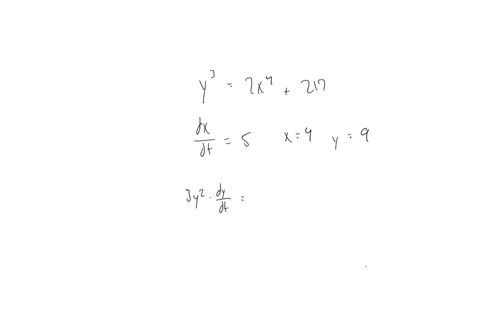 y³ = 2x⁴ + 217
dx/dt = 5 x=4 y=9
3y² · dy/dt =